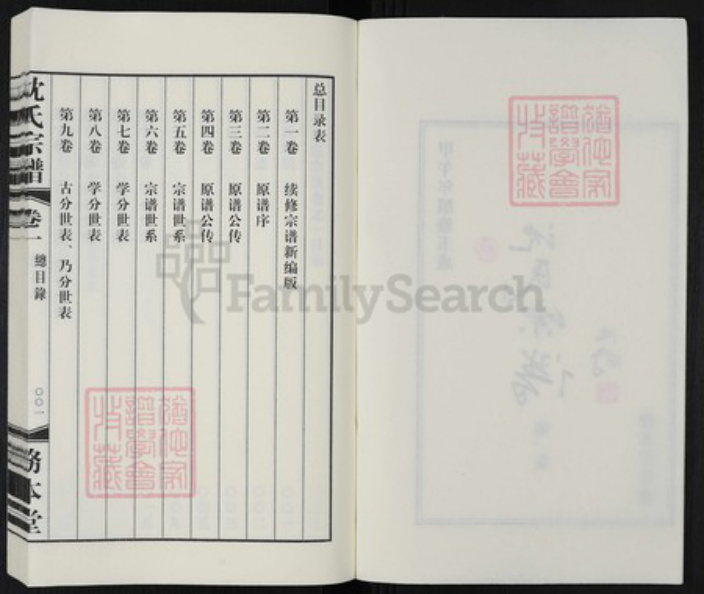 总目录表
第一卷 续修宗谱新编版
第二卷 原谱序
第三卷 原谱公传
第四卷 原谱公传
第五卷 宗谱世系
第六卷 宗谱世系
第七卷 学分世表
第八卷 学分世表
第九卷 古分世表、乃分世表
沈氏宗譜 卷一 總目錄 〇〇一 務本堂
FamilySearch